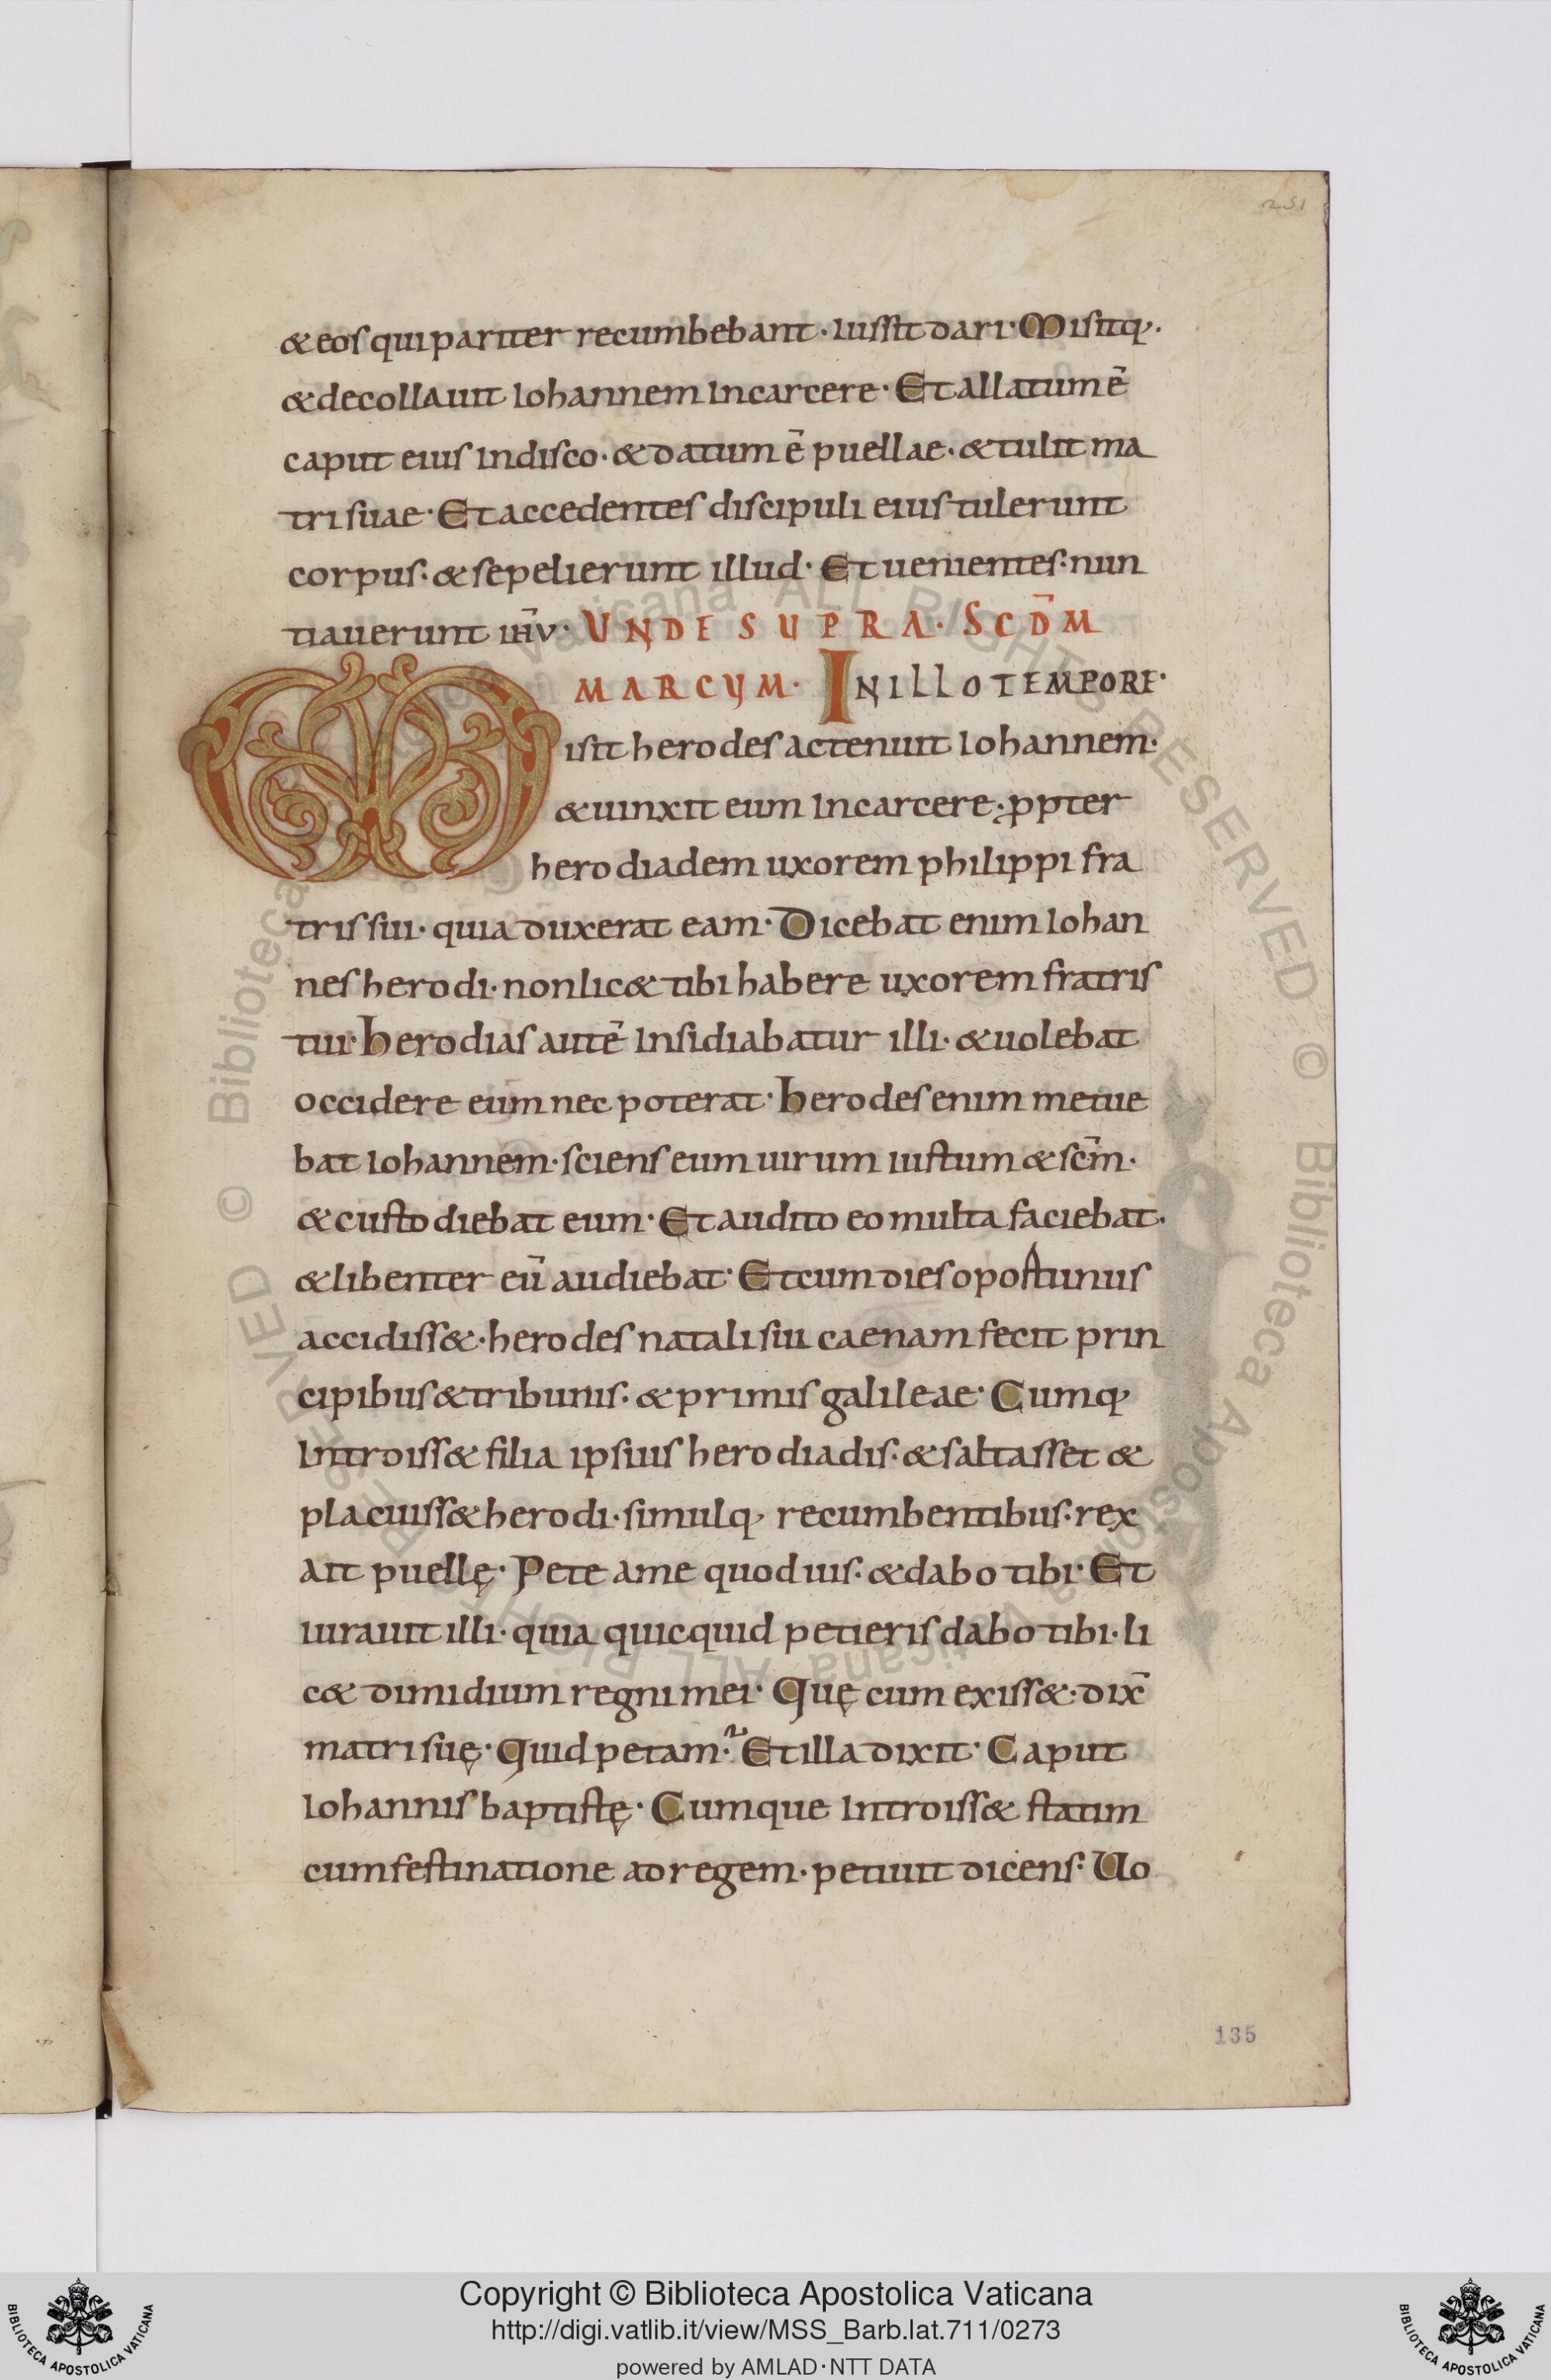 251
& eos qui pariter recumbebant · iussit dari · Misitq;·
& decollauit iohannem in carcere · Et allatum ē
caput eius in disco · & datum ē puellae · & tulit ma
tri suae · Et accedentes discipuli eius tulerunt
corpus · & sepelierunt illud · Et uenientes · nun
tiauerunt ih̄v · UNDE SUPRA · SCD̄M
MARCYM · IN ILLO TEMPORE ·
Misit herodes ac tenuit iohannem ·
& uinxit eum in carcere · ꝓpter
herodiadem uxorem philippi fra
tris sui · quia duxerat eam · Dicebat enim iohan
nes herodi · non lic& tibi habere uxorem fratris
tui · herodias autē insidiabatur illi · & uolebat
occidere eum nec poterat · herodes enim metue
bat iohannem · sciens eum uirum iustum & sc̄m ·
& custodiebat eum · Et audito eo multa faciebat ·
& libenter eū audiebat · Et cum dies oportunus
accidiss& · herodes natali sui caenam fecit prin
cipibus & tribunis · & primis galileae · Cumq;
introiss& filia ipsius herodiadis · & saltasset &
placuiss& herodi · simulq; recumbentibus · rex
ait puellę · Pete a me quod uis · & dabo tibi · Et
iurauit illi · quia quicquid petieris dabo tibi · li
c& dimidium regni mei · Quę cum exiss& · dix̄
matri suę · Quid petam · Et illa dixit · Caput
iohannis baptistę · Cumque introiss& statim
cum festinatione ad regem · petiuit dicens · Uo
135
© Biblioteca Apostolica Vaticana ALL RIGHTS RESERVED
© Biblioteca Apostolica Vaticana ALL RIGHTS RESERVED
BIBLIOTECA APOSTOLICA VATICANA
Copyright © Biblioteca Apostolica Vaticana
http://digi.vatlib.it/view/MSS_Barb.lat.711/0273
powered by AMLAD·NTT DATA
BIBLIOTECA APOSTOLICA VATICANA